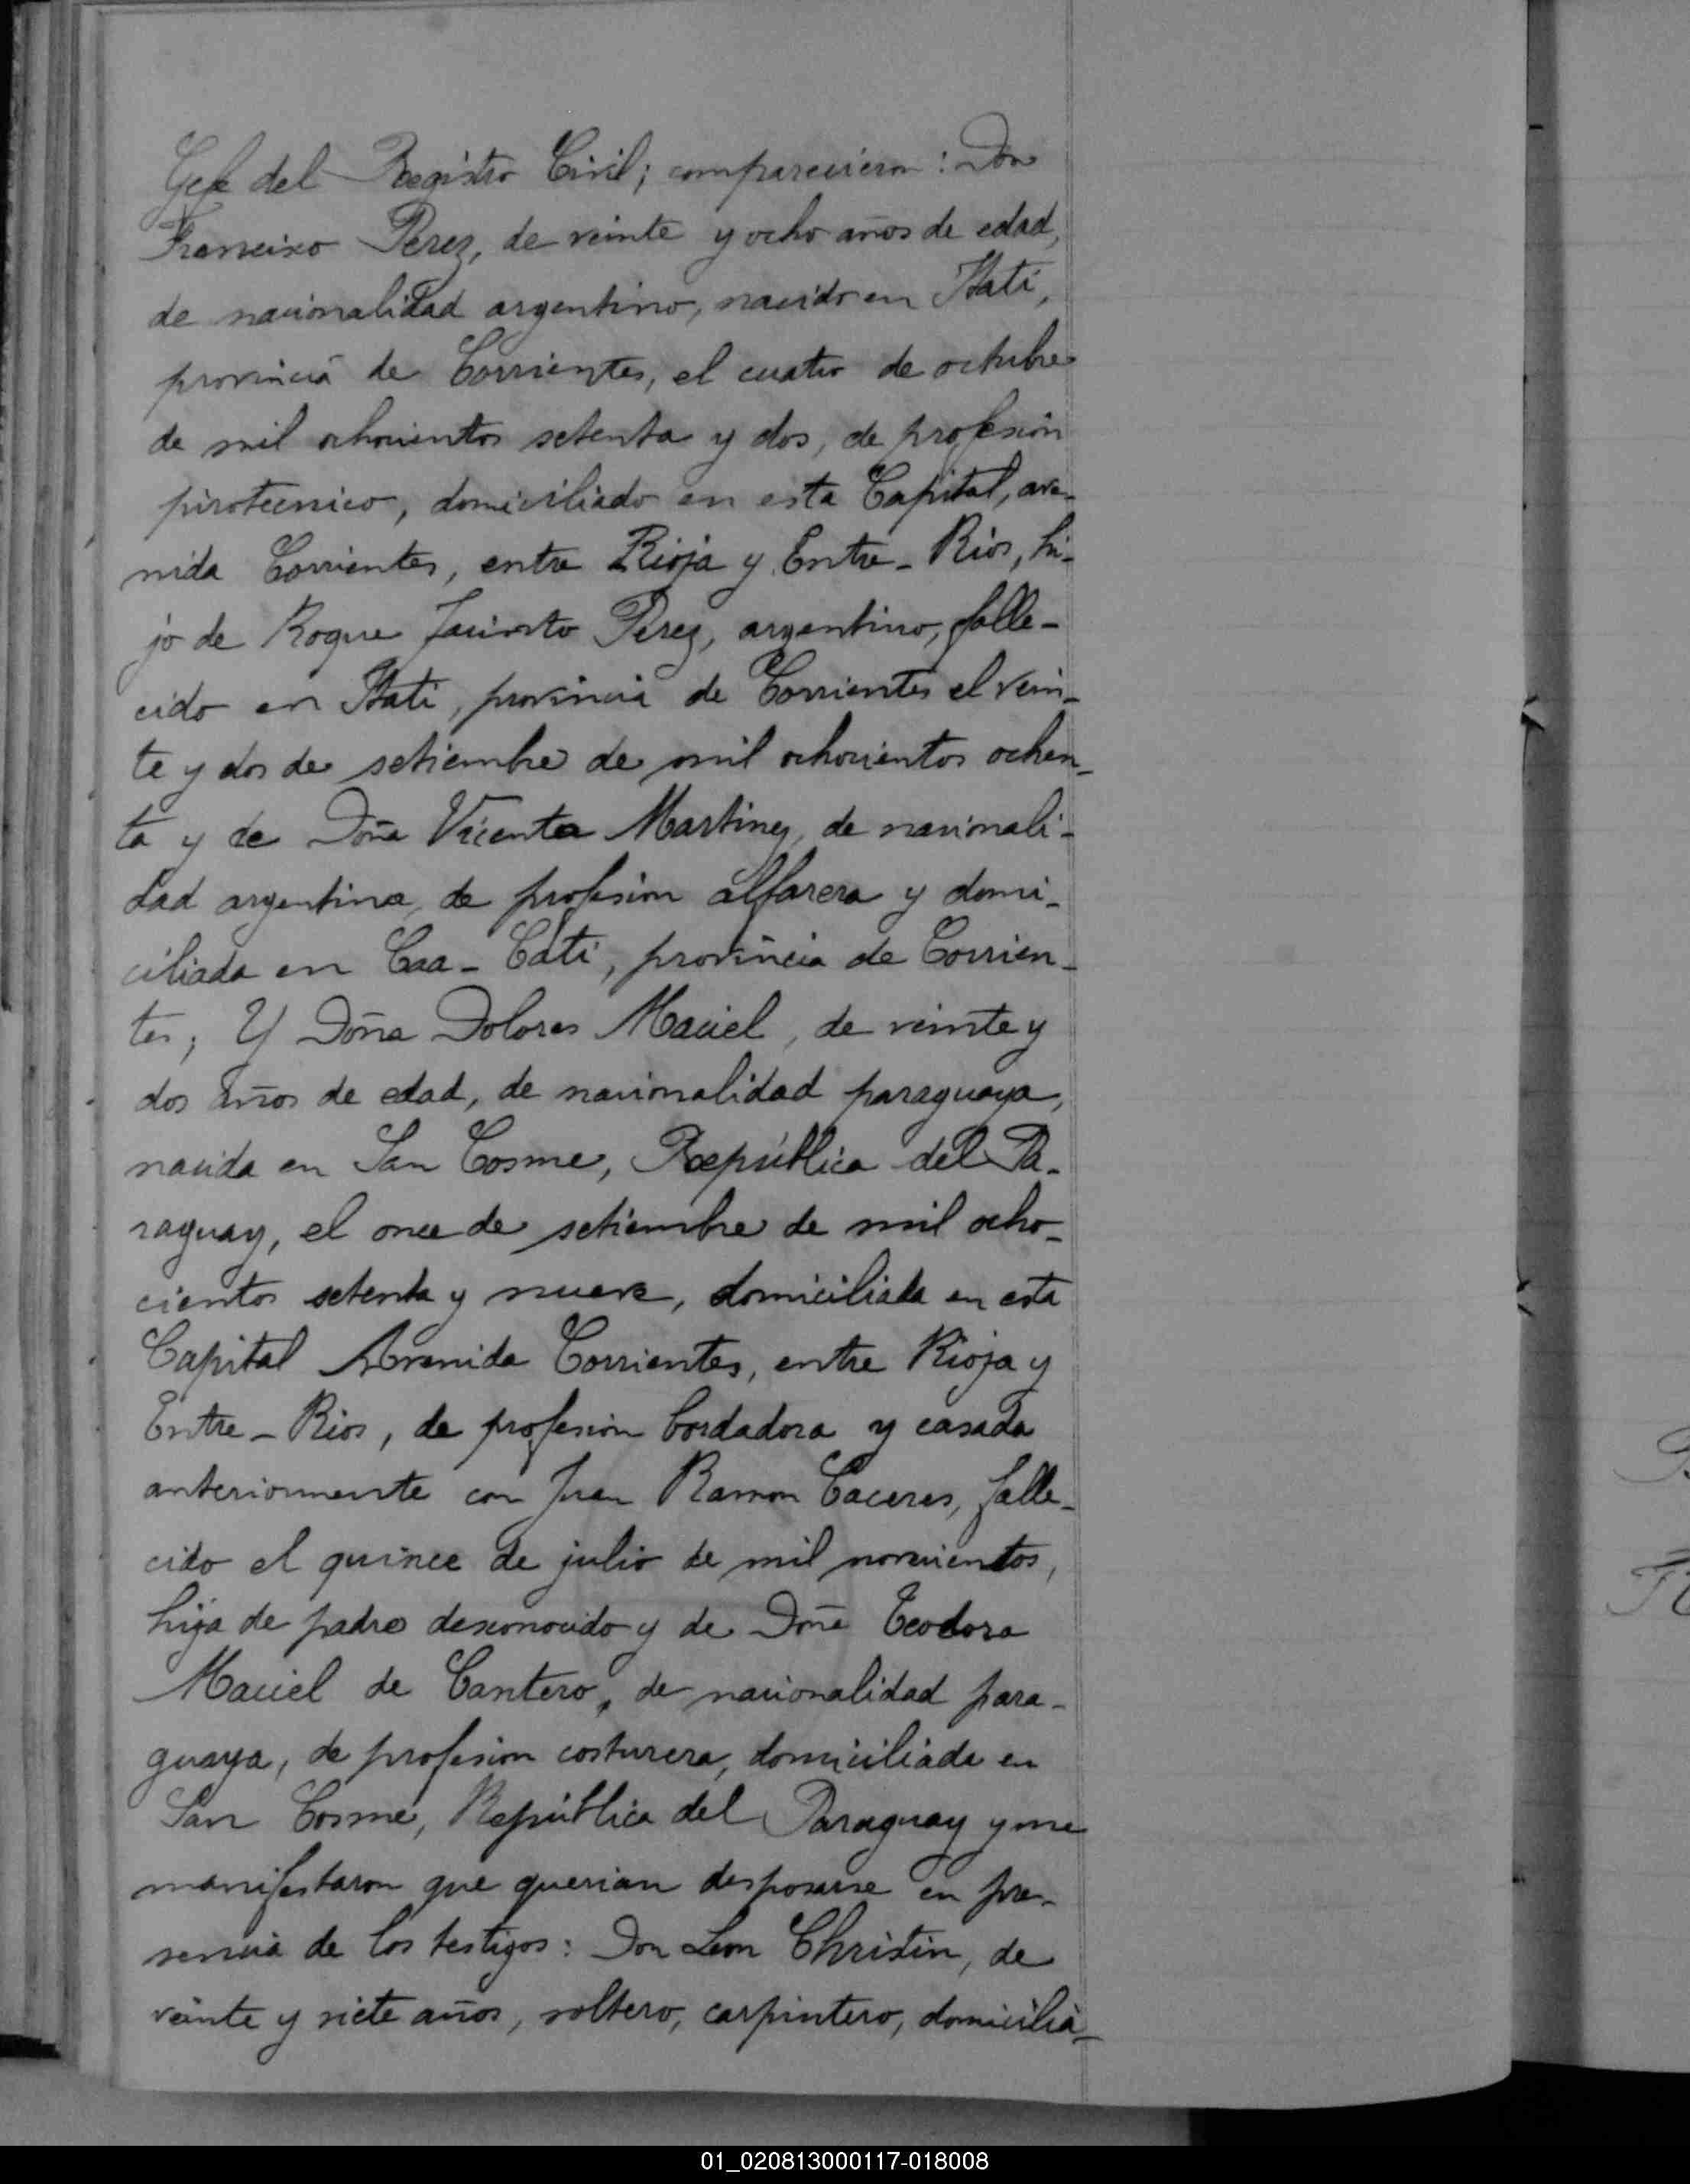 Gefe del Registro Civil; comparecieron: Don
Francisco Perez, de veinte y ocho años de edad,
de nacionalidad argentino, nacido en Itatí,
provincia de Corrientes, el cuatro de octubre
de mil ochocientos setenta y dos, de profesion
pirotecnico, domiciliado en esta Capital, ave-
nida Corrientes, entre Rioja y Entre-Rios, hi-
jo de Roque Jacinto Perez, argentino, falle-
cido en Itatí, provincia de Corrientes el vein-
te y dos de setiembre de mil ochocientos ochen-
ta y de Doña Vicenta Martinez, de nacionali-
dad argentina, de profesion alfarera y domi-
ciliada en Caa-Catí, provincia de Corrien-
tes; Y Doña Dolores Maciel, de veinte y
dos años de edad, de nacionalidad paraguaya,
nacida en San Cosme, República del Pa-
raguay, el once de setiembre de mil ocho-
cientos setenta y nueve, domiciliada en esta
Capital Avenida Corrientes, entre Rioja y
Entre-Rios, de profesion bordadora y casada
anteriormente con Juan Ramon Caceres, falle-
cido el quince de julio de mil novecientos,
hija de padre desconocido y de Doña Teodora
Maciel de Cantero, de nacionalidad para-
guaya, de profesion costurera, domiciliada en
San Cosme, República del Paraguay y me
manifestaron que querian desposarse en pre-
sencia de los testigos: Don Leon Christin, de
veinte y siete años, soltero, carpintero, domicilia-
01_020813000117-018008